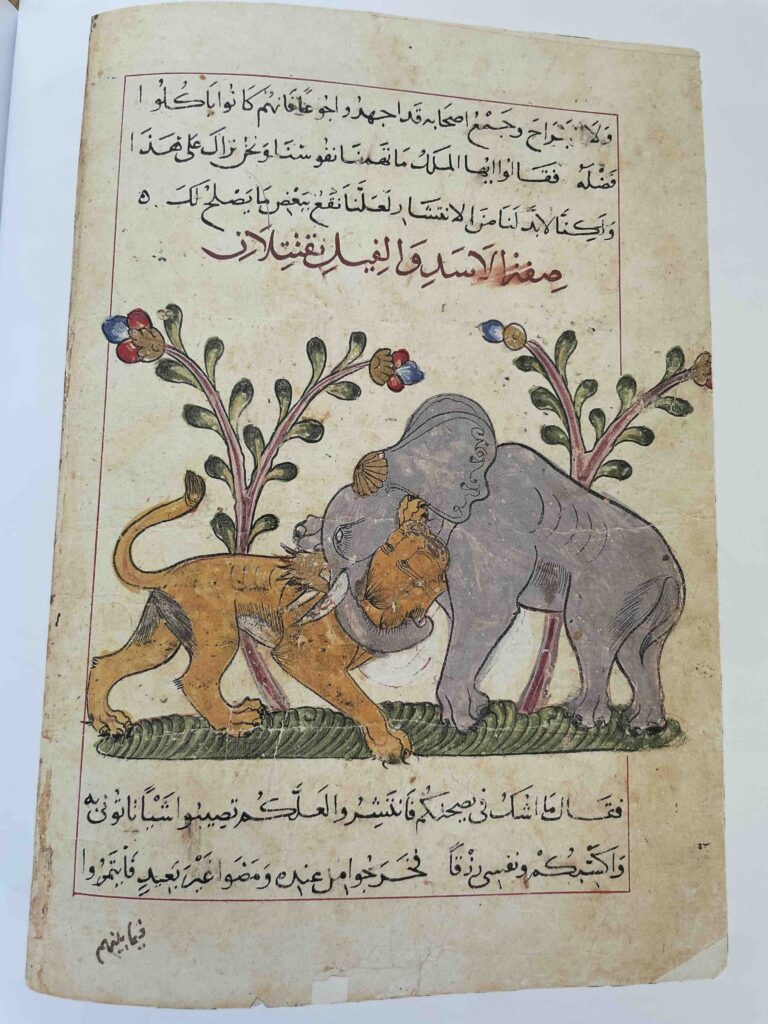 ولا جراح وجميع اصحابه قد اجهدوا جوعا فانهم كانوا ياكلوا
فضله فقالوا ايها الملك ما تهمنا نفوسنا ونحن نراك على هذا
ولكنا لابد لنا من الانتشار لعلنا نقع ببعض ما يصلح لك ٥
صفة الاسد والفيل يقتتلان
فقال ما اشك في نصحتكم فانتشروا لعلكم تصيبوا شيا تاتوني به
واكسبكم ونفسي رزقا فخرجوا من عنده ومضوا غير بعيد فايتمروا
فيما بينهم